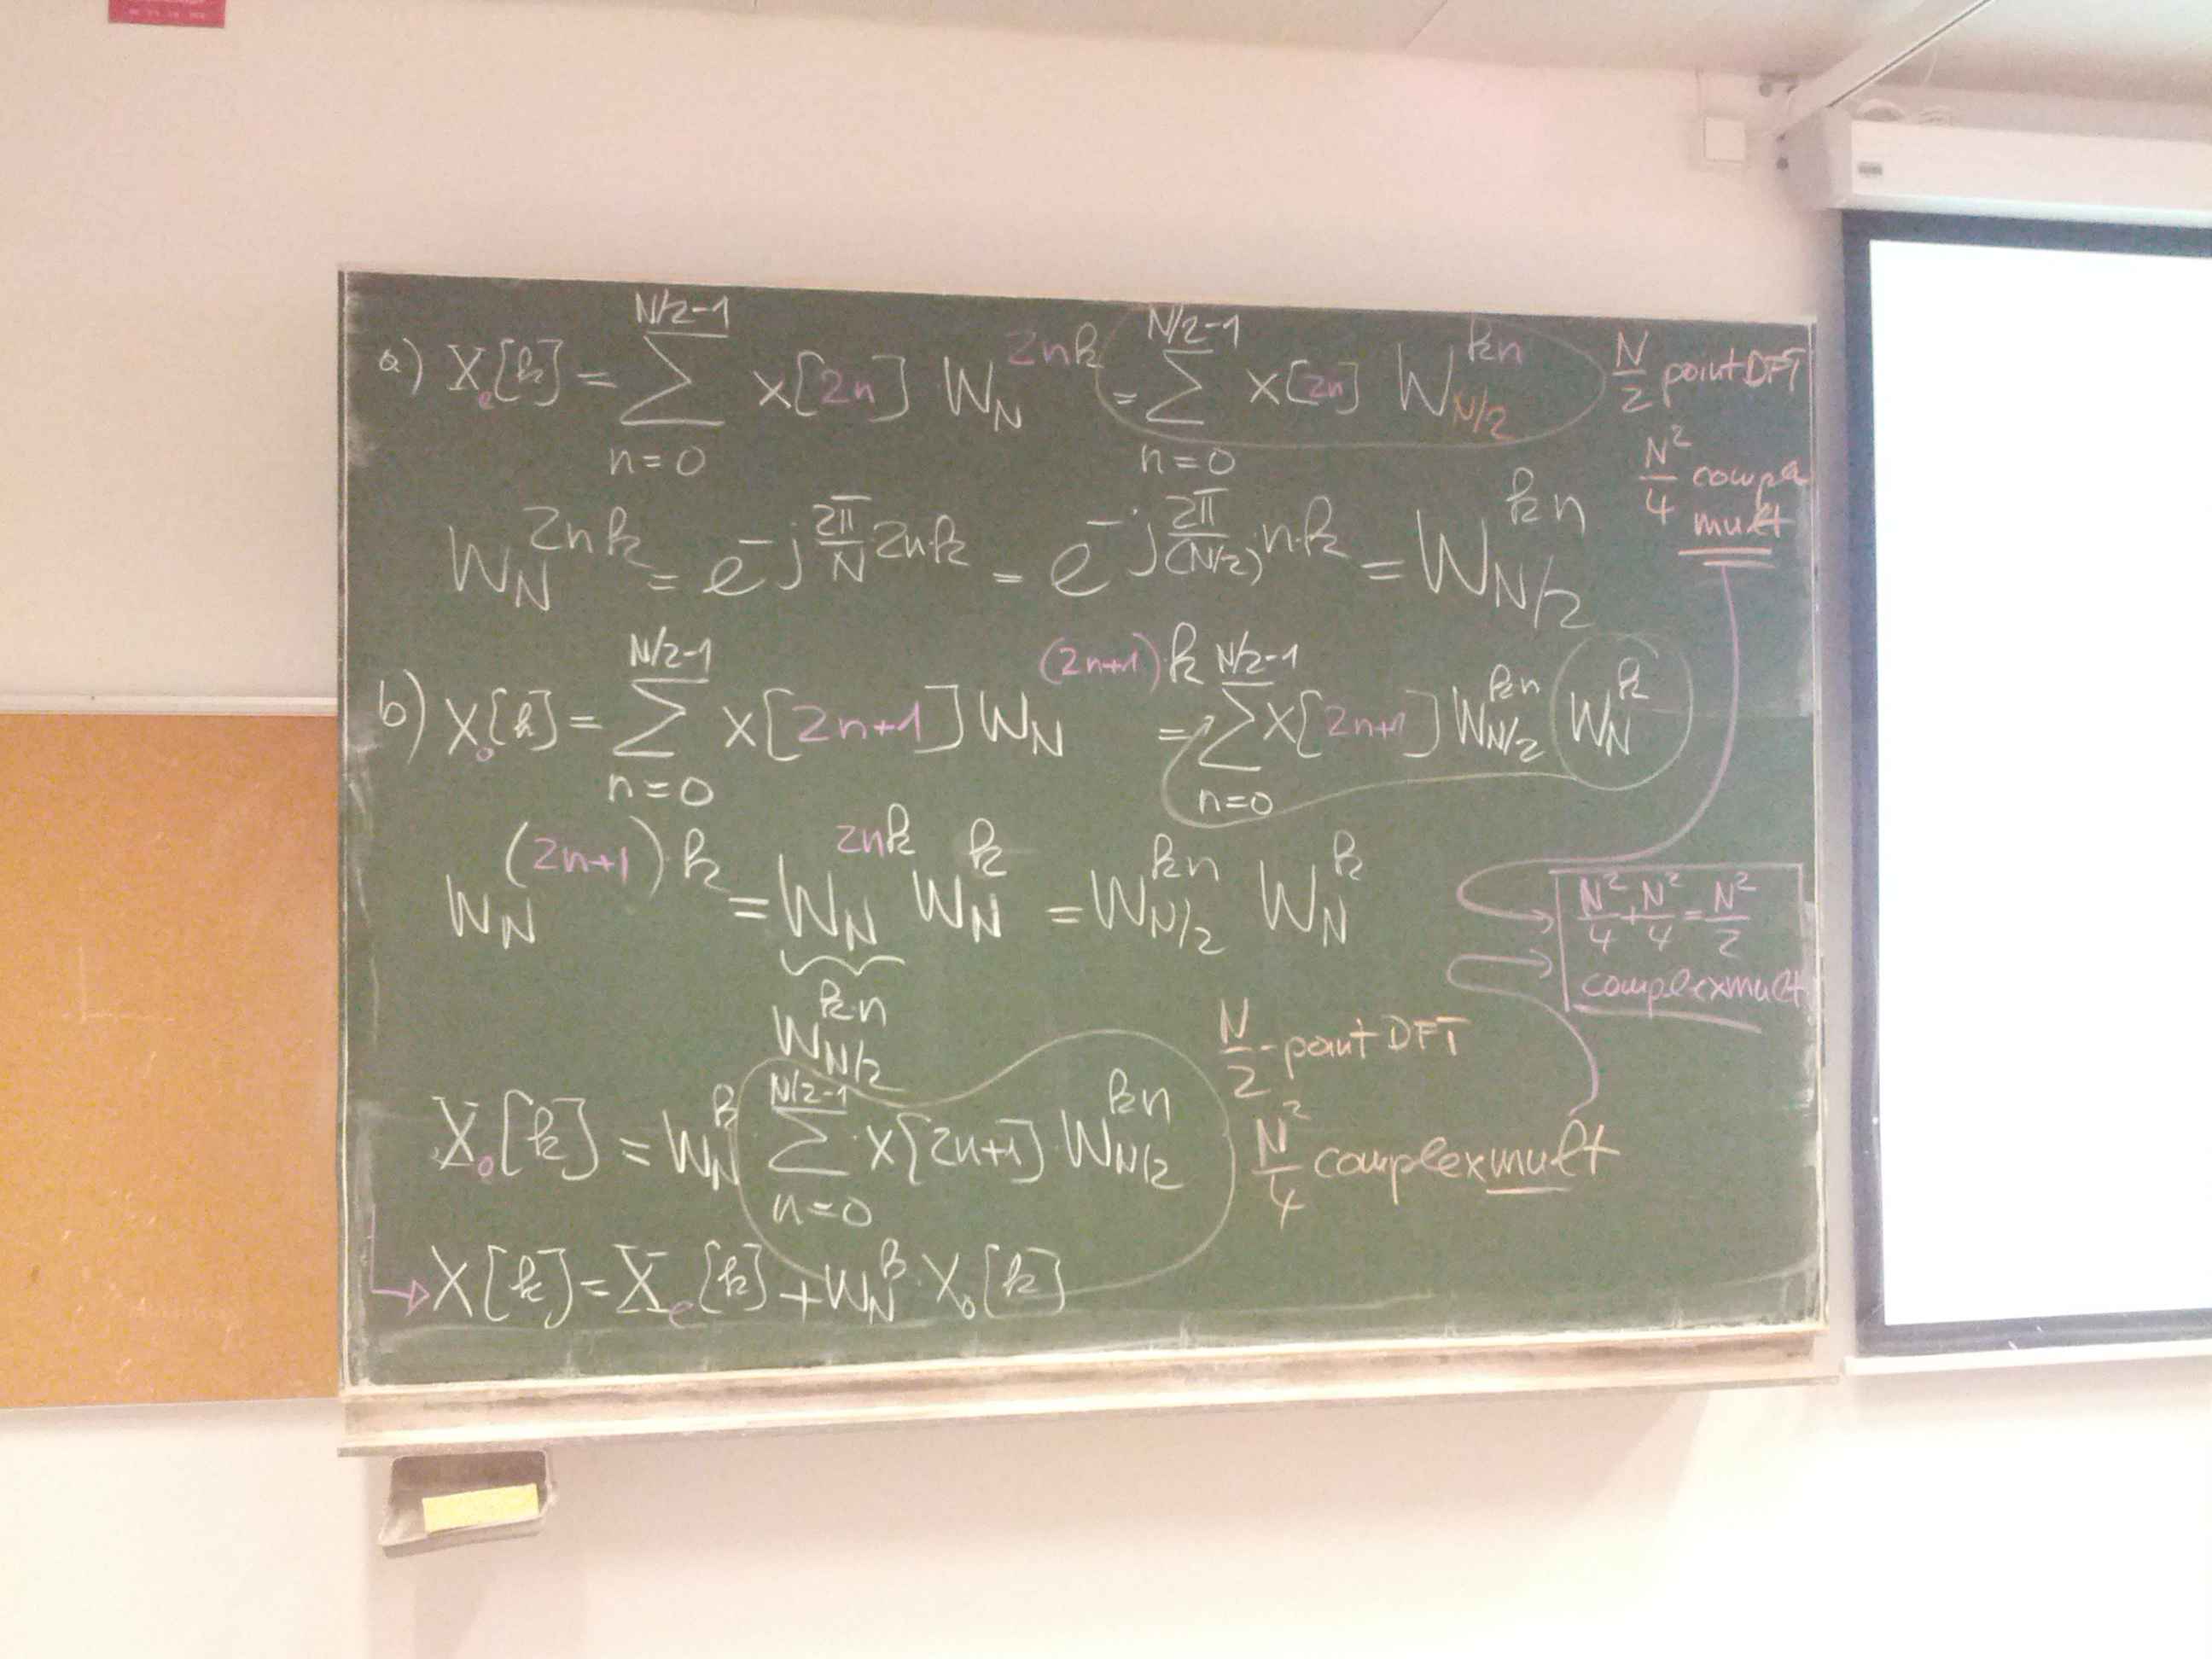 a) X_e[k] = \sum_{n=0}^{N/2-1} x[2n] W_N^{2nk} = \sum_{n=0}^{N/2-1} x[2n] W_{N/2}^{kn}
N/2 point DFT
N²/4
mult
W_N^{2nk} = e^{-j 2π/N 2n·k} = e^{-j 2π/(N/2) n·k} = W_{N/2}^{kn}
b) X_o[k] = \sum_{n=0}^{N/2-1} x[2n+1] W_N^{(2n+1)·k} = \sum_{n=0}^{N/2-1} x[2n+1] W_{N/2}^{kn} W_N^k
W_N^{(2n+1)·k} = W_N^{2nk} W_N^k = W_{N/2}^{kn} W_N^k
W_{N/2}^{k·n}
N²/4 + N²/4 = N²/2
complex mult
N/2 - point DFT
X_o[k] = W_N^k \sum_{n=0}^{N/2-1} x[2n+1] W_{N/2}^{kn}
N²/4 complex mult
X[k] = X_e[k] + W_N^k · X_o[k]